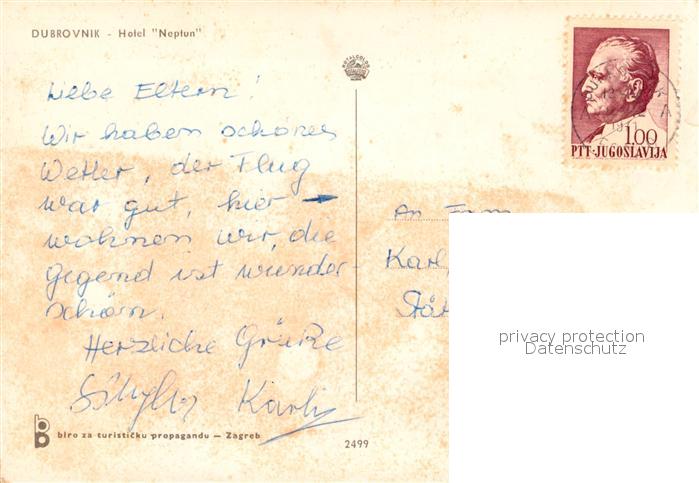 DUBROVNIK - Hotel "Neptun"
Liebe Eltern!
Wir haben schönes
Wetter, der Flug
war gut, hier →
wohnen wir, die
Gegend ist wunder-
schön.
Herzliche Grüße
Karli
An Fam
Karl
1971
1.00
PTT·JUGOSLAVIJA
privacy protection
Datenschutz
biro za turističku propagandu — Zagreb
2499